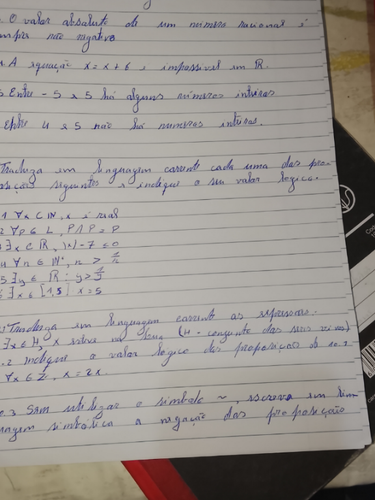 O valor absoluto de um número racional é
sempre não negativo
A equação x = x + 6 é impossível em ℝ.
Entre -5 e 5 há alguns números inteiros
Entre 4 e 5 não há numeros inteiros.
Traduza em linguagem corrente cada uma das pro-
posição seguintes e indique o seu valor logico.
1 ∀x ∈ ℕ, x é real
2 ∀p ∈ L, p ∧ p = p
∃x ∈ ℝ, |x| - 7 ≤ 0
4 ∀n ∈ ℕ
5 ∃y ∈ ℝ: y >
∃x ∈ [1,5] x = 5
Traduza em linguagem corrente as expressoes.
∃x ∈ H, x (H - conjunto dos seres vivos)
.2 Indique o valor logico das proposição de 10.2
∀x ∈ Z, x = 2x.
3 Sem utilizar o simbolo ~, escreva em lin
guagem simbolica a negação das proposição